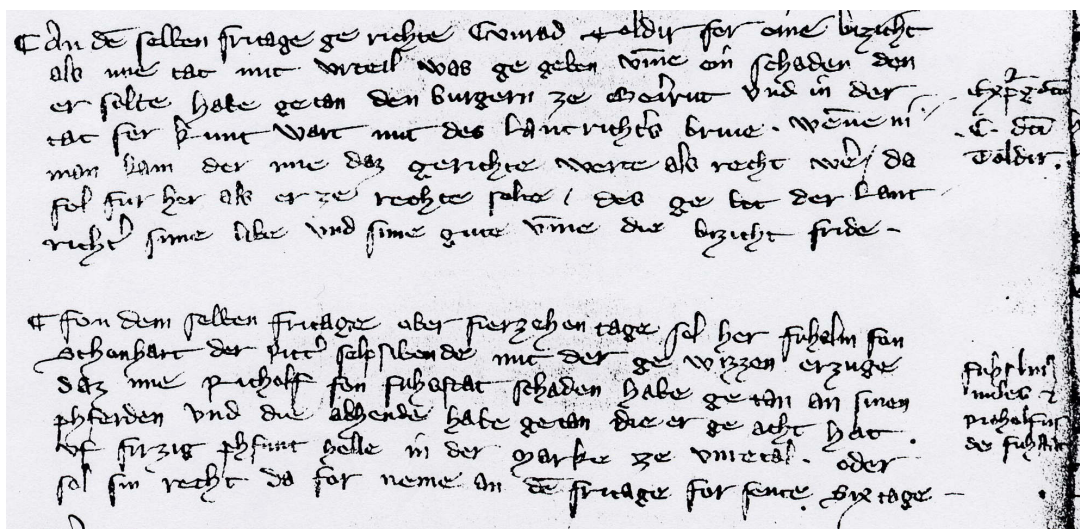 An dē selben fritage ge richte Cunrad Toldir for eine bezicht
als ime tat mit urteil was ge geben vm̄e ein schaden den
er solte habe getan den burgern ze und in der
tat fer kunt wart mit des lantricht's brive . wēne ni
man kam der ime daz gerichte werte als recht we'r / da
fol fur her als er ze rechte solte / des ge bot der lant
richt' sime libe und sime gute vm̄e die bezicht fride –
. C . dc̄i
Toldir .
fon dem selben fritage ober fierzehen tage sol her fuhelin fon
Schonhart der ritt' selpsibende mit der ge wizzen erzuge
daz ime richolf fon fuhsstat schaden habe ge tan an sinen
phferden und die habe getan die er ge acht hat .
uf firzig phfunt helle in der marke ze . oder
sol sin recht da for neme an dē fritage for sente Sixtage –
richolfus
de fuhstat